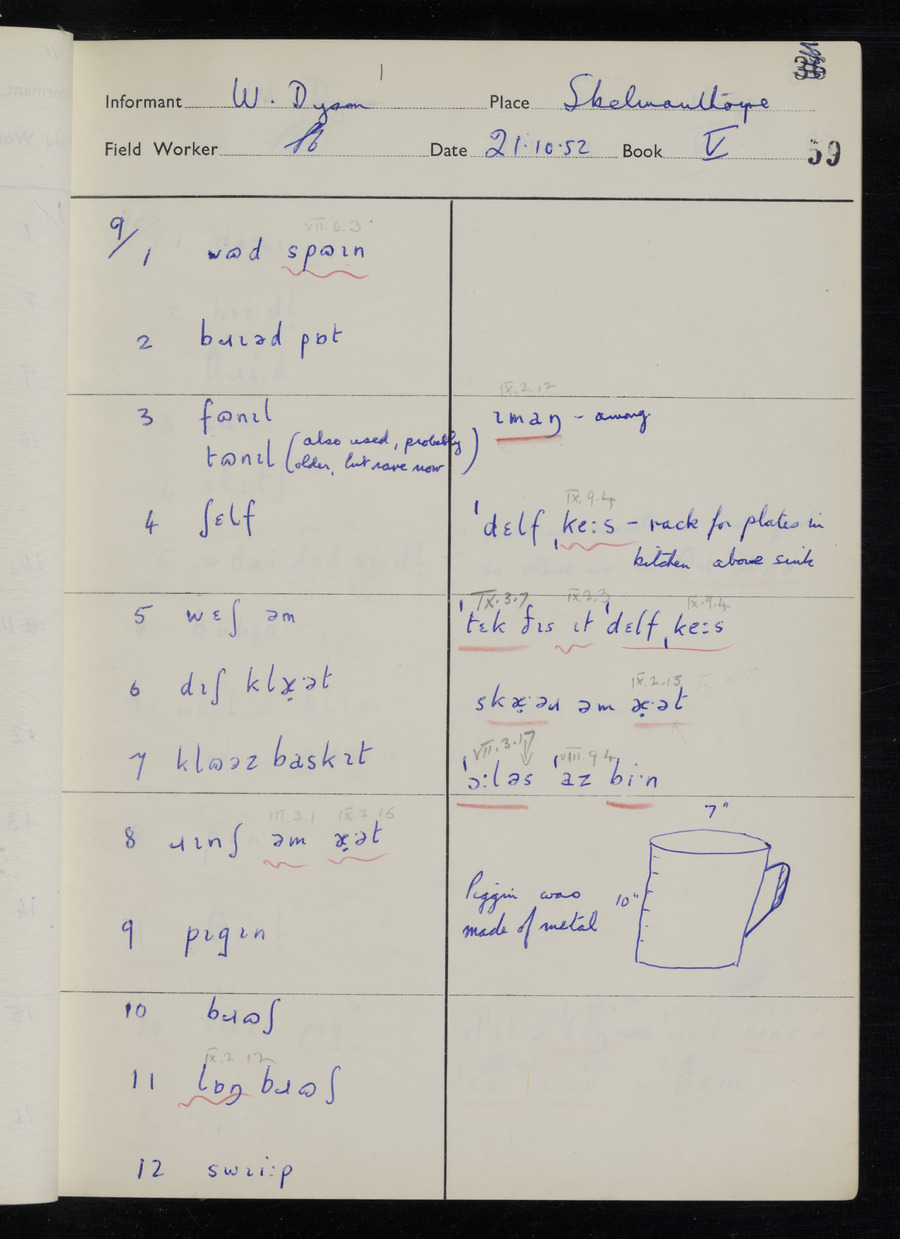 Informant W. Dyson Place Skelmanthorpe
Field Worker Date 21.10.52 Book V 59
9/1 wɷd spɷɪn
VII.6.3
2 bɹɪəd pɒt
3 fɷnɪl
tɷnɪl (also used, probably
older, but rare now)
4 ʃɛlf
5 wɛʃ əm
6 dɪʃ klæ̣·ət
7 klɷəz baskɪt
III.3.1 IX.2.15
8 ɹɪnʃ əm æ̣·ət
9 pɪgɪn
10 bɹɷʃ
IX.2.12
11 lɒŋ bɹɷʃ
12 swɪi:p
IX.2.12
ɪmaŋ - among
IX.9.4
ˈdɛlf ˌke:s - rack for plates in
kitchen above sink
IX.3.7 IX.2.3 IX.9.4
ˈtɛk ðɪs ɪt ˈdɛlf ˌke:s
IX.2.15
skæ̣·əɹ əm æ̣·ət
VII.3.17 VIII.9.4
ˈɔ:ləs ˈaz bi·n
7"
10"
Piggin was
made of metal